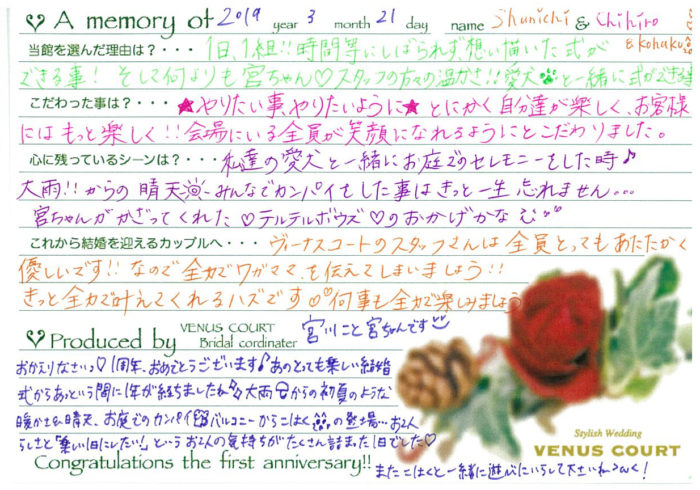 A memory of 2019 year 3 month 21 day name Shunichi & Chihiro
& kohaku
当館を選んだ理由は？・・・1日、1組!!時間等にしばられず、想い描いた式が
できる事! そして何よりも宮ちゃん♡スタッフの方々の温かさ!!愛犬🐾と一緒に式ができる事
こだわった事は？・・・★やりたい事、やりたいように★とにかく自分達が楽しく、お客様
にはもっと楽しく!!会場にいる全員が笑顔になれるようにとこだわりました。
心に残っているシーンは？・・・私達の愛犬と一緒にお庭でのセレモニーをした時♪
大雨!!からの晴天☀みんなでカンパイをした事はきっと一生忘れません...
宮ちゃんがかざってくれた♡テルテルボウズ♡のおかげかなむ
これから結婚を迎えるカップルへ・・・ヴィーナスコートのスタッフさんは全員とってもあたたかく
優しいです!!なので全力でワガママを伝えてしまいましょう!!
きっと全力で叶えてくれるハズです♡何事も全力で楽しみましょう
Produced by VENUS COURT
Bridal cordinater 宮川こと宮ちゃんです
おかえりなさいっ♡1周年、おめでとうございます♪あのとっても楽しい結婚
式からあっという間に1年が経ちましたね♪大雨☂からの初夏のような
暖かさな晴天、お庭でのカンパイ🍻バルコニーからこはく🐾の登場...お2人
らしさと「楽しい1日にしたい!」というお2人の気持ちがたくさん詰まった1日でした♡
Congratulations the first anniversary!! またこはくと一緒に遊びにいらして下さいね
Stylish Wedding
VENUS COURT